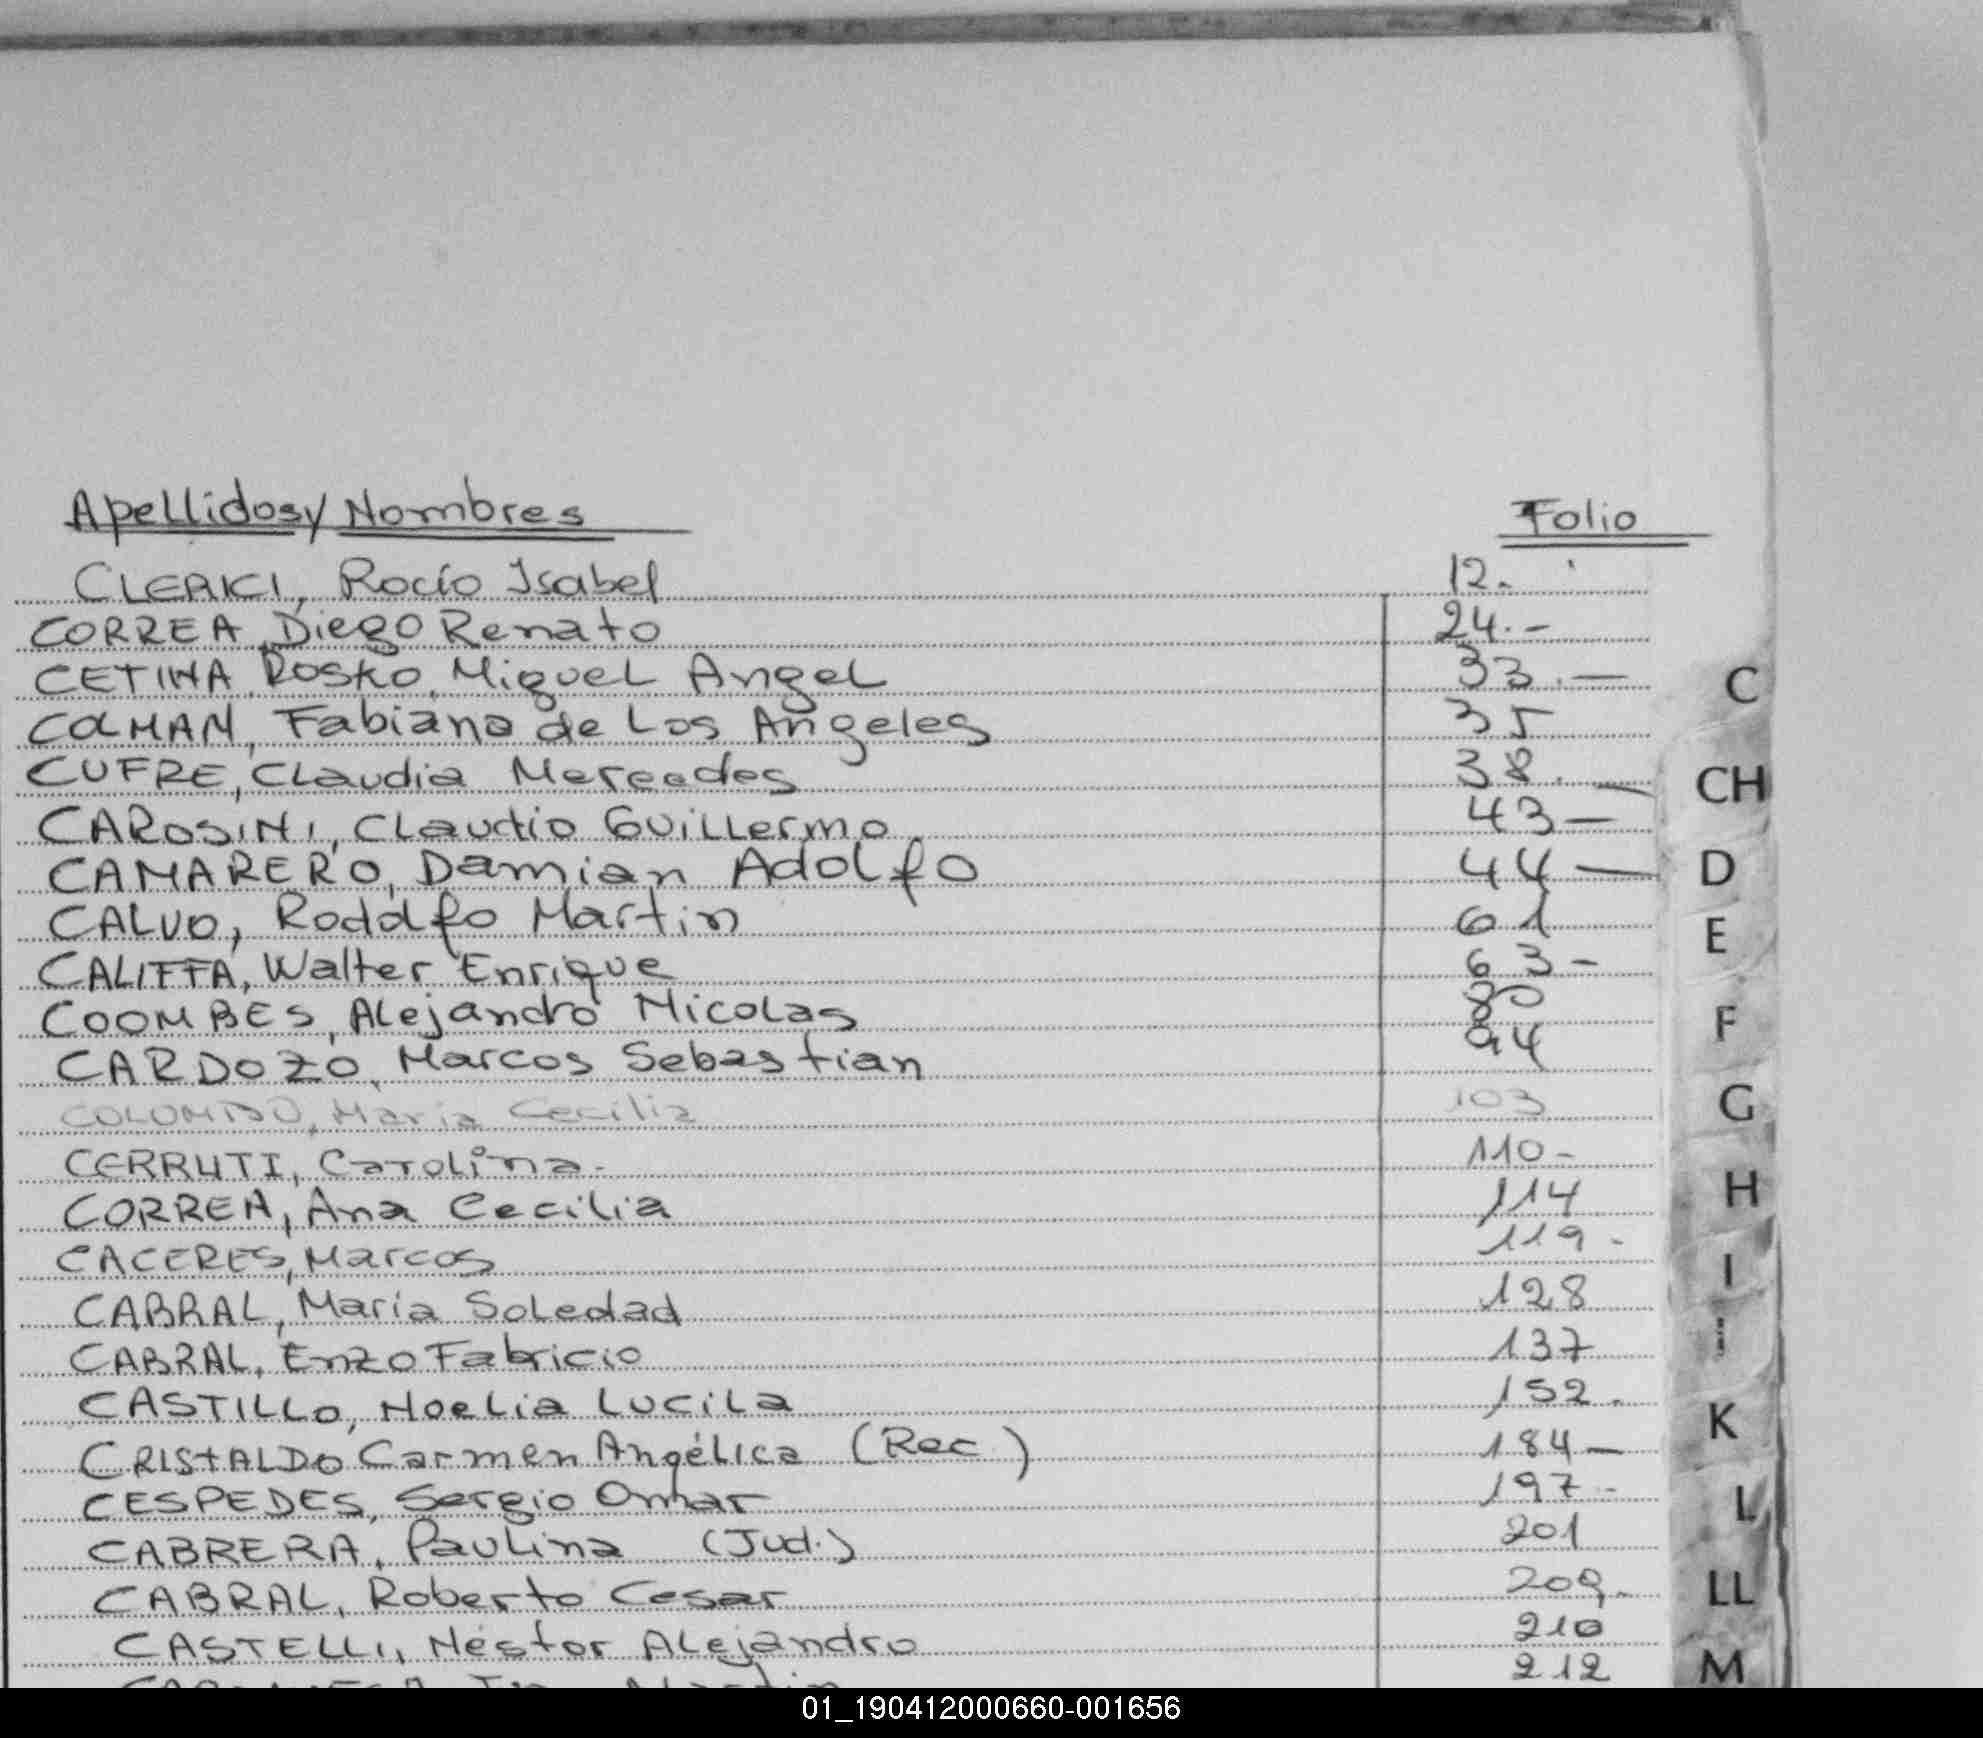 Apellidos y Nombres Folio
CLERICI, Rocío Isabel 12.
CORREA, Diego Renato 24.-
CETINA Rosko, Miguel Angel 33.—
COLMAN, Fabiana de Los Angeles 35
CUFRE, Claudia Mercedes 38.—
CAROSINI, Claudio Guillermo 43—
CAMARERO, Damian Adolfo 44—
CALVO, Rodolfo Martin 61
CALIFFA, Walter Enrique 63-
COOMBES, Alejandro Nicolas 80
CARDOZO, Marcos Sebastian 94
COLOMBO, Maria Cecilia 103
CERRUTI, Carolina.- 110-
CORREA, Ana Cecilia 114
CACERES, Marcos 119-
CABRAL, María Soledad 128
CABRAL, Enzo Fabricio 137
CASTILLO, Noelia Lucila 152.
CRISTALDO Carmen Angélica (Rec.) 184—
CESPEDES, Sergio Omar 197-
CABRERA, Paulina (Jud.) 201
CABRAL, Roberto Cesar 209.
CASTELLI, Néstor Alejandro 210
212
C
CH
D
E
F
G
H
I
K
L
LL
M
01_190412000660-001656